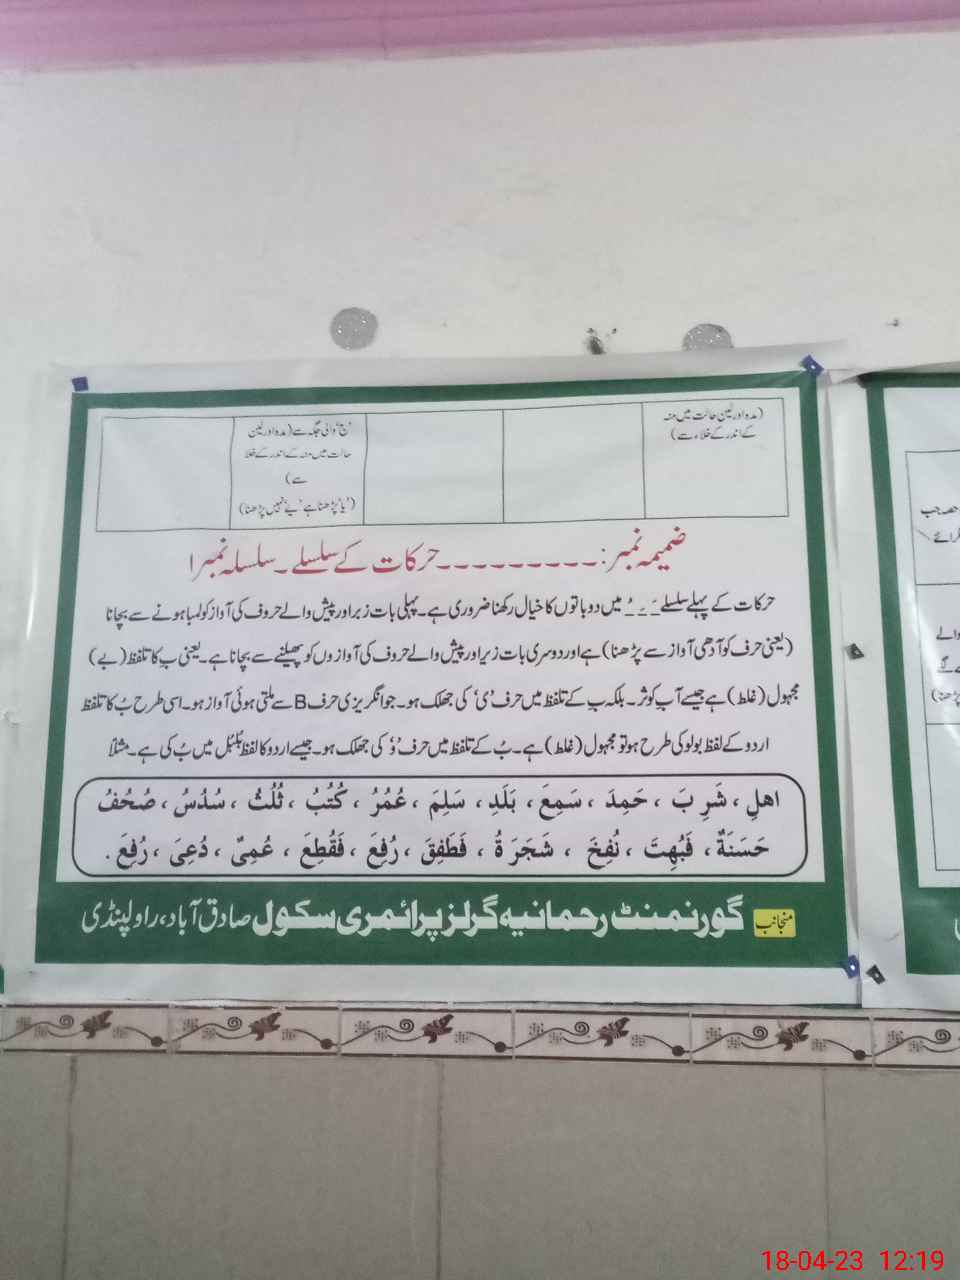 (مدہ اور لین حالت میں منہ
کے اندر کے خلاء سے)
'ج' والی جگہ سے (مدہ اور لین
حالت میں منہ کے اندر کے خلا
سے)
('یا' پڑھنا ہے 'یے' نہیں پڑھنا)
ضمیمہ نمبر: ـ ـ ـ ـ ـ ـ ـ ـ ـ حرکات کے سلسلے۔ سلسلہ نمبر ۱
حرکات کے پہلے سلسلے ـَ ـِ ـُ میں دو باتوں کا خیال رکھنا ضروری ہے۔ پہلی بات زبر اور پیش والے حروف کی آواز کو لمبا ہونے سے بچانا
(یعنی حرف کو آدھی آواز سے پڑھنا) ہے اور دوسری بات زیر اور پیش والے حروف کی آوازوں کو پھیلنے سے بچانا ہے۔ یعنی بِ کا تلفظ (بے)
مجہول (غلط) ہے جیسے آبِ کوثر۔ بلکہ بِ کے تلفظ میں حرف 'ی' کی جھلک ہو۔ جو انگریزی حرف B سے ملتی ہوئی آواز ہو۔ اسی طرح بُ کا تلفظ
اردو کے لفظ بولو کی طرح ہو تو مجہول (غلط) ہے۔ بُ کے تلفظ میں حرف 'وُ' کی جھلک ہو۔ جیسے اردو کا لفظ بُلبُل میں بُ کی ہے۔ مثلاً
اھلِ ، شَرِ بَ ، حَمِدَ ، سَمِعَ ، بَلَدِ ، سَلِمَ ، عُمُرُ ، كُتُبُ ، ثُلُثُ ، سُدُسُ ، صُحُفُ
حَسَنَةٌ ، فَبُهِتَ ، نُفِخَ ، شَجَرَ ةُ ، فَطَفِقَ ، رُفِعَ ، فَقُطِعَ ، عُمِىٌ ، دُعِىَ ، رُفِعَ .
منجانب گورنمنٹ رحمانیہ گرلز پرائمری سکول صادق آباد، راولپنڈی
حصہ جب
والے
18-04-23 12:19